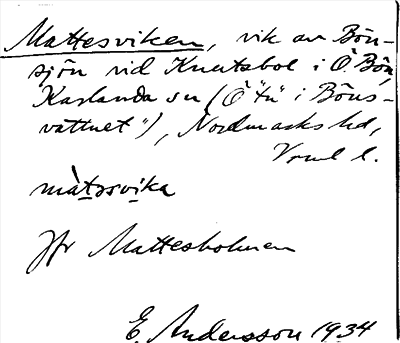 Mattesviken, vik av Bön-
sjön vid Knutsbol i Ö. Bön,
Karlanda sn (Ö "tu" i Böns-
vattnet"), Nordmarks hd,
Vrml l.
màt̲s̲svi̲ka
Jfr Mattesholmen
E. Andersson 1934